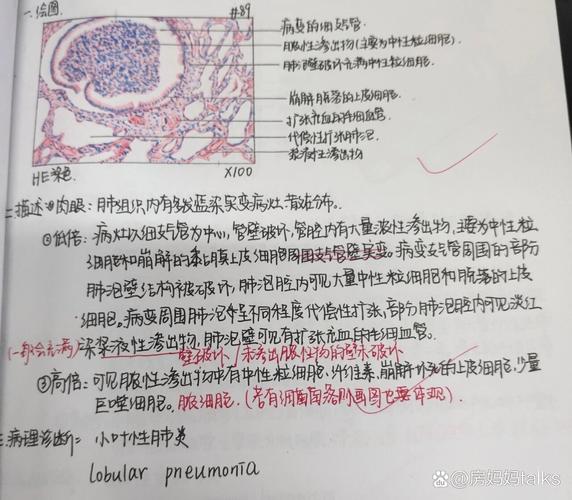 一.绘图. #89
病变的细支气管.
脓性渗出物(主要为中性粒细胞).
肺泡壁破坏充满中性粒细胞.
崩解脱落的上皮细胞.
扩张充血的毛细血管.
代偿性扩张肺泡.
浆液性渗出物
HE染色. X100
二.描述:①肉眼:肺组织内有多发蓝染实变病灶,散在分布.
②低倍:病灶以细支气管为中心,管壁破坏,管腔内有大量浓性渗出物,主要为中性粒
细胞和崩解的黏膜上皮细胞周围支气管壁实变。病变支气管周围的部分
肺泡壁结构被破坏,肺泡腔内可见大量中性粒细胞和脱落的上皮
细胞。病变周围肺泡呈不同程度代偿性扩张,部分肺泡腔内可见淡红
(一部分充满)染浆液性渗出物,肺泡壁可见有扩张充血的毛细血管。
壁破坏/未渗出脓性物的壁未破坏
③高倍:可见脓性渗出物中有中性粒细胞,纤维素,崩解坏死的上皮细胞,少量
巨噬细胞。脓细胞.(若有细菌菌落则画图也要体现).
三.病理诊断:小叶性肺炎
lobular pneumonia
@房妈妈talks